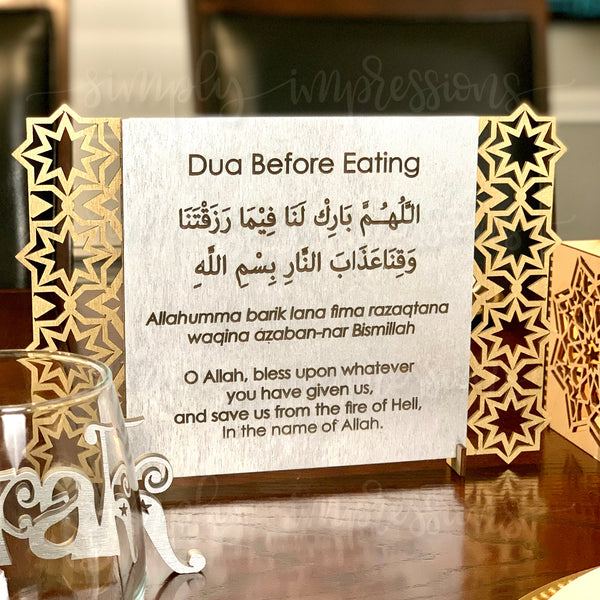 simply impressions
Dua Before Eating
اللَّهُمَّ بَارِكْ لَنَا فِيْمَا رَزَقْتَنَا
وَقِنَاعَذَابَ النَّارِ بِسْمِ اللَّهِ
Allahumma barik lana fima razaqtana
waqina ázaban-nar Bismillah
O Allah, bless upon whatever
you have given us,
and save us from the fire of Hell,
In the name of Allah.